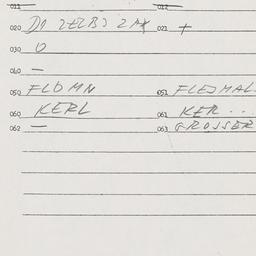 011 012
020 DO 021 +
030 0
040 —
050 FLOMN 051 FLEJMAL
060 KERL 061 KER..
062 — 063 GROSSER